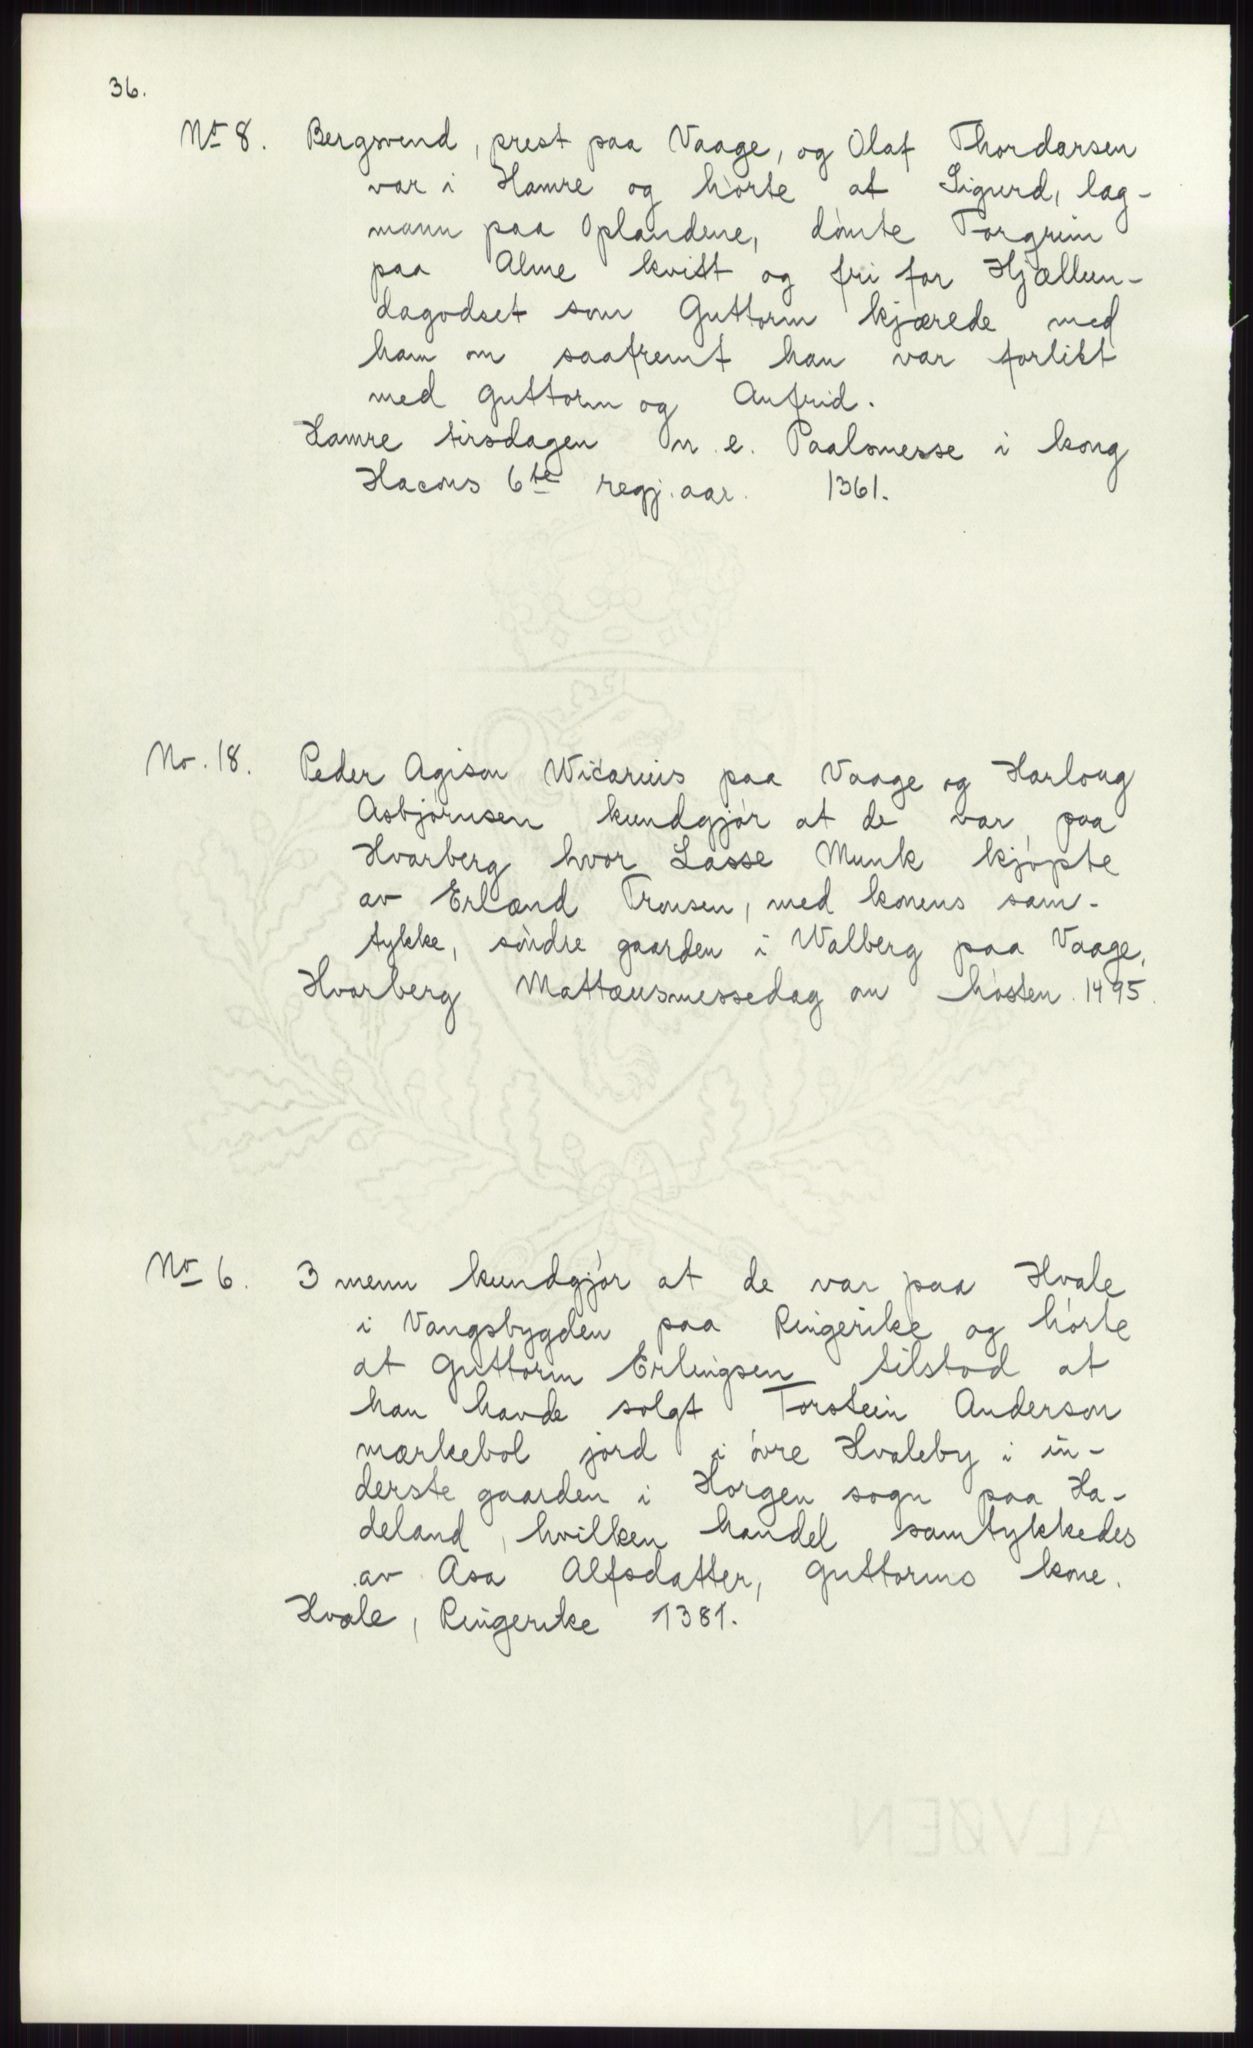 36.
Nr 8. Bergsvend, prest paa Vaage, og Olaf Thordarsen
var i Hamre og hórte at Sigurd, lag-
mann paa Oplandene, dómte Torgrim
paa Alme kvitt og fri for Hjællun-
dagodset som Guttorm kjærede med
ham om saafremt han var forlikt
med Guttorm og Anfrid.
Hamre tirsdagen n. e. Paalsmesse i kong
Hacons 6te regj. aar. 1361.
No. 18. Peder Agison Wicarius paa Vaage og Harloug
Asbjórnsen kundgjór at de var paa
Hvarberg hvor Lasse Munk kjópte
av Erland Tronsen, med konens sam-
tykke, sóndre gaarden i Walberg paa Vaage.
Hvarberg Mattæusmessedag om hósten. 1495.
No 6. 3 menn kundgjór at de var paa Hvale
i Vangsbygden paa Ringerike og hórte
at Guttorm Erlingsen tilstod at
han havde solgt Torstein Anderson
mærkebol jord i óvre Hvaleby i in-
derste gaarden i Horgen sogn paa Ha-
deland, hvilken handel samtykkedes
av Asa Alfsdatter, Guttorms kone.
Hvale, Ringerike 1381.
ALVØEN